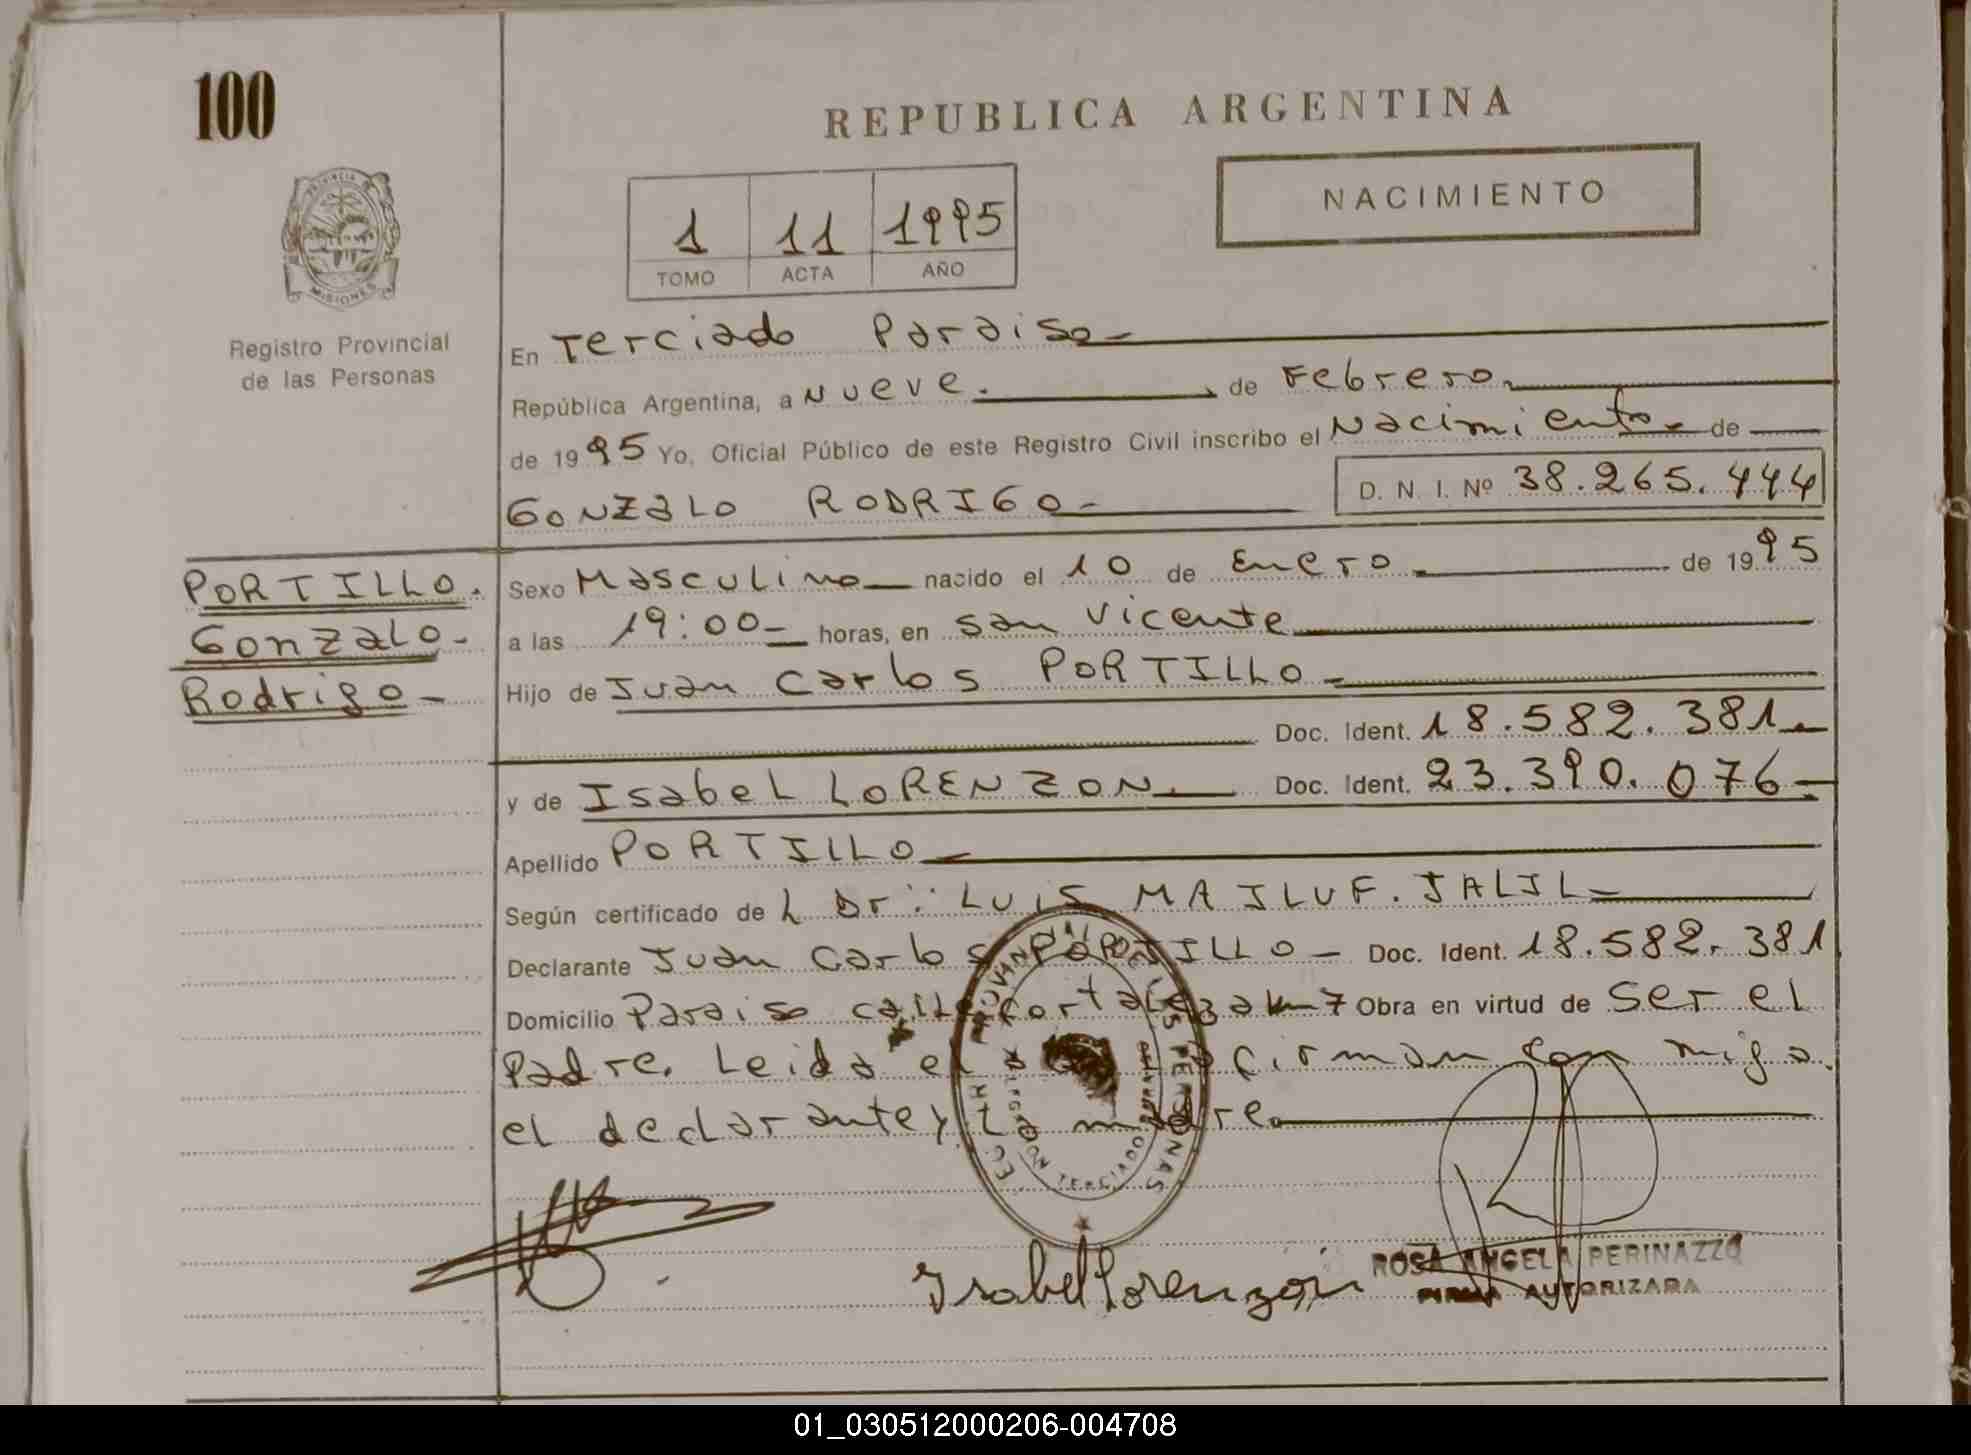 100
REPUBLICA ARGENTINA
PROVINCIA DE
MISIONES
Registro Provincial
de las Personas
1 11 1995
TOMO ACTA AÑO
NACIMIENTO
En Terciado Paraiso
República Argentina, a Nueve. de Febrero
de 1995 Yo, Oficial Público de este Registro Civil inscribo el Nacimiento de
GONZALO RODRIGO D. N. I. Nº 38.265.444
PORTILLO.
Gonzalo
Rodrigo
Sexo Masculino nacido el 10 de Enero de 1995
a las 19:00 horas, en San Vicente
Hijo de Juan Carlos PORTILLO
Doc. Ident. 18.582.381
y de Isabel LORENZON Doc. Ident. 23.390.076
Apellido PORTILLO
Según certificado de L Dr: LUIS MAILUF. JALIL
Declarante Juan Carlos PORTILLO Doc. Ident. 18.582.381
Domicilio Paraiso calle Fortaleza km 7 Obra en virtud de Ser el
Padre. Leida el firman con migo.
el declarante y la madre
Isabel Lorenzon
ROSA ANGELA PERINAZZO
FIRMA AUTORIZADA
01_030512000206-004708